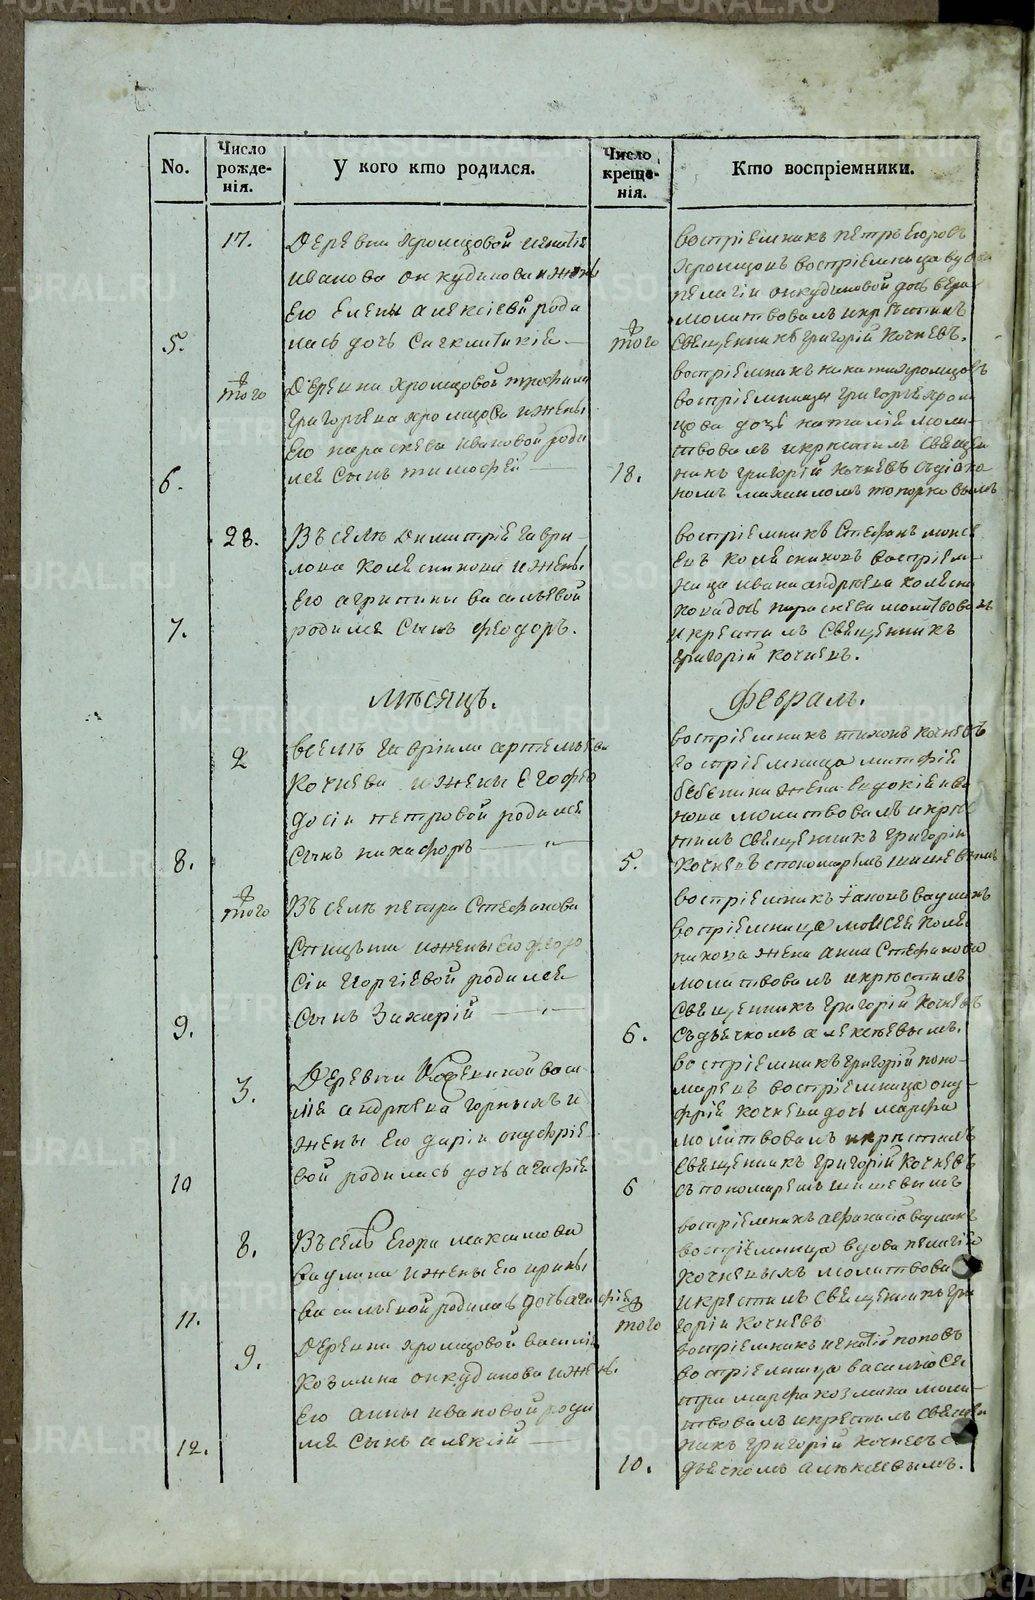 No.
Число рожде-нія.
У кого кто родился.
Число креще-нія.
Кто воспріемники.
5.
17.
Деревни Хромцовой Игнатія
Иванова Онкудинова и жены
Его Елены Алексіевй роди
лась дочь Сигклитикія
того
Воспріемникъ Петръ Егоровъ
Хромцовъ воспріемница вдова
Пелагіи Онкудиновой дочь Вера
молитвовалъ и крѣстилъ
Священникъ Григорій Кочневъ.
6.
того
Деревни Хромцовой Трофима
Григорьева Хромцова и жены
Его Параскева Ивановой роди
лся Сынъ Тимофей
18.
воспріемникъ Никита Хромцовъ
воспріемница Григорья Хром
цова дочь Наталія моли-
твовалъ и крѣстилъ Священ
никъ Григорій Кочневъ съ діако
номъ Михаиломъ Топорковымъ
7.
28.
Въ селѣ Димитрія Гаври-
лова Колясникова и жены
Его Агрипины Васильевой
родился Сынъ Феодоръ.
воспріемникъ Стефанъ Моисе
евъ Колясниковъ воспріем-
ница Ивана Андреева Колясни
кова дочь Параскева молитвовалъ
и крестилъ Священникъ
Григорій Кочневъ.
Мѣсяцъ.
Февраль.
8.
2
Въ селѣ Гавріила Артемьева
Кочнева и жены Его Фео
досіи Петровой родился
Сынъ Никифоръ
5.
воспріемникъ Тихонъ Кочневъ
воспріемница
жена Евдокія Ива
нова молитвовалъ и крѣс
тилъ Священникъ Григорій
Кочневъ с пономаремъ Шишевымъ
9.
того
Въ селѣ Петра Стефанова
Спицына и жены Его Феодо
сіи Георгіевой родился
Сынъ Захарій
6.
воспріемникъ Іаковъ Ваулинъ
воспріемница Моисея Коляс
никова жена Анна Стефанова
молитвовалъ и крѣстилъ
Священникъ Григорій Кочневъ
съ дьячкомъ Алексеевымъ.
10
3.
Деревни Васи
лія Андреева Горныхъ и
жены Его Даріи Онуфріе-
вой родилась дочь Агафія
6
воспріемникъ Григорій Поно-
маревъ воспріемница Ону-
фрія Кочнева дочь Марфа
молитвовалъ и крѣстилъ
Священникъ Григорій Кочневъ
съ пономаремъ Шишевымъ
11.
8.
Въ селѣ Егора Максимова
Ваулина и жены Его Ирины
Васильевой родилась дочь Агафія
того
воспріемникъ Афанасій Ваулинъ
воспріемница вдова Пелагія
Кочневыхъ молитвовалъ
и крестилъ Священникъ Гри
горій Кочневъ
12.
9.
Деревни Хромцовой Василія
Козьмина Онкудинова и жены.
Его Анны Ивановой роди
лся Сынъ Алексій
10.
воспріемникъ Игнатій Поповъ
воспріемница Василья Сес
тра Марфа Козьмина моли-
твовалъ и крестилъ Священ
никъ Григорій Кочневъ с
дьячкомъ Алексеевымъ.